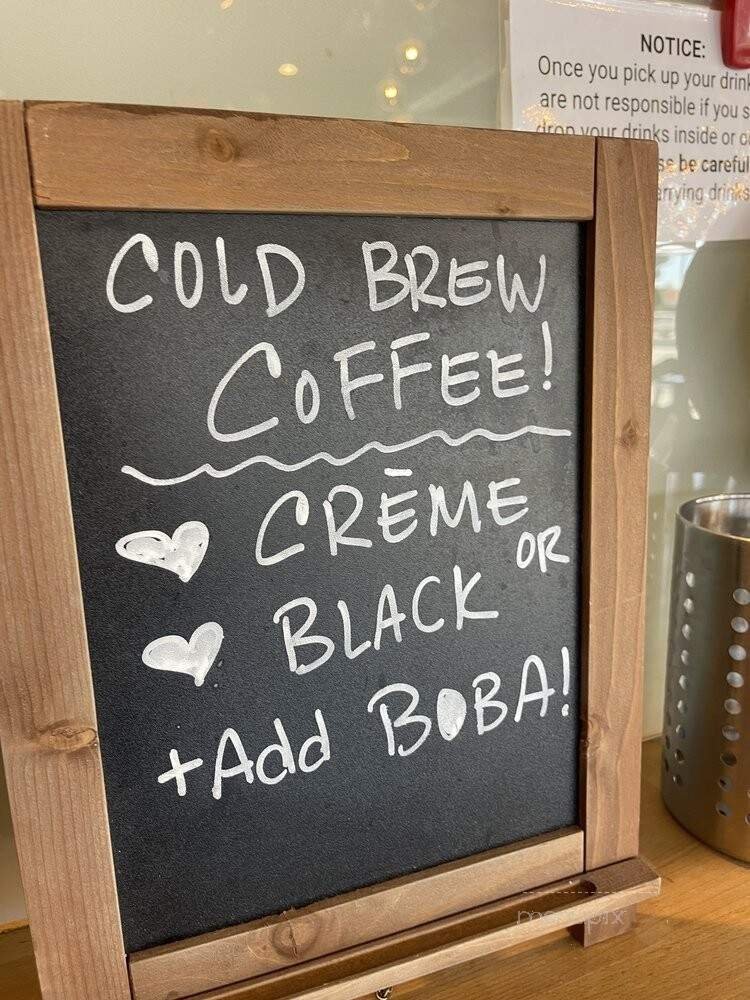 NOTICE:
Once you pick up your drink
are not responsible if you s
drop your drinks inside or o
se be careful
arrying drinks
COLD BREW
COFFEE!
CRĒME
OR
BLACK
+Add BOBA!